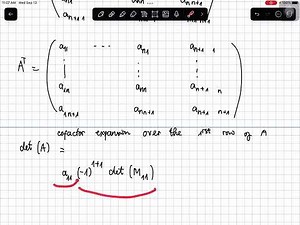 11:07 AM Wed Sep 13
a₁₁ ⋯ aₙ₁ aₙ₊₁ ₁
Aᵀ =
a₁ₙ aₙₙ aₙ₊₁ ₙ
a₁ₙ₊₁ aₙₙ₊₁ aₙ₊₁ ₙ₊₁
cofactor expansion over the 1st row of A
det (A) =
a₁₁ (-1)¹⁺¹ det (M₁₁)